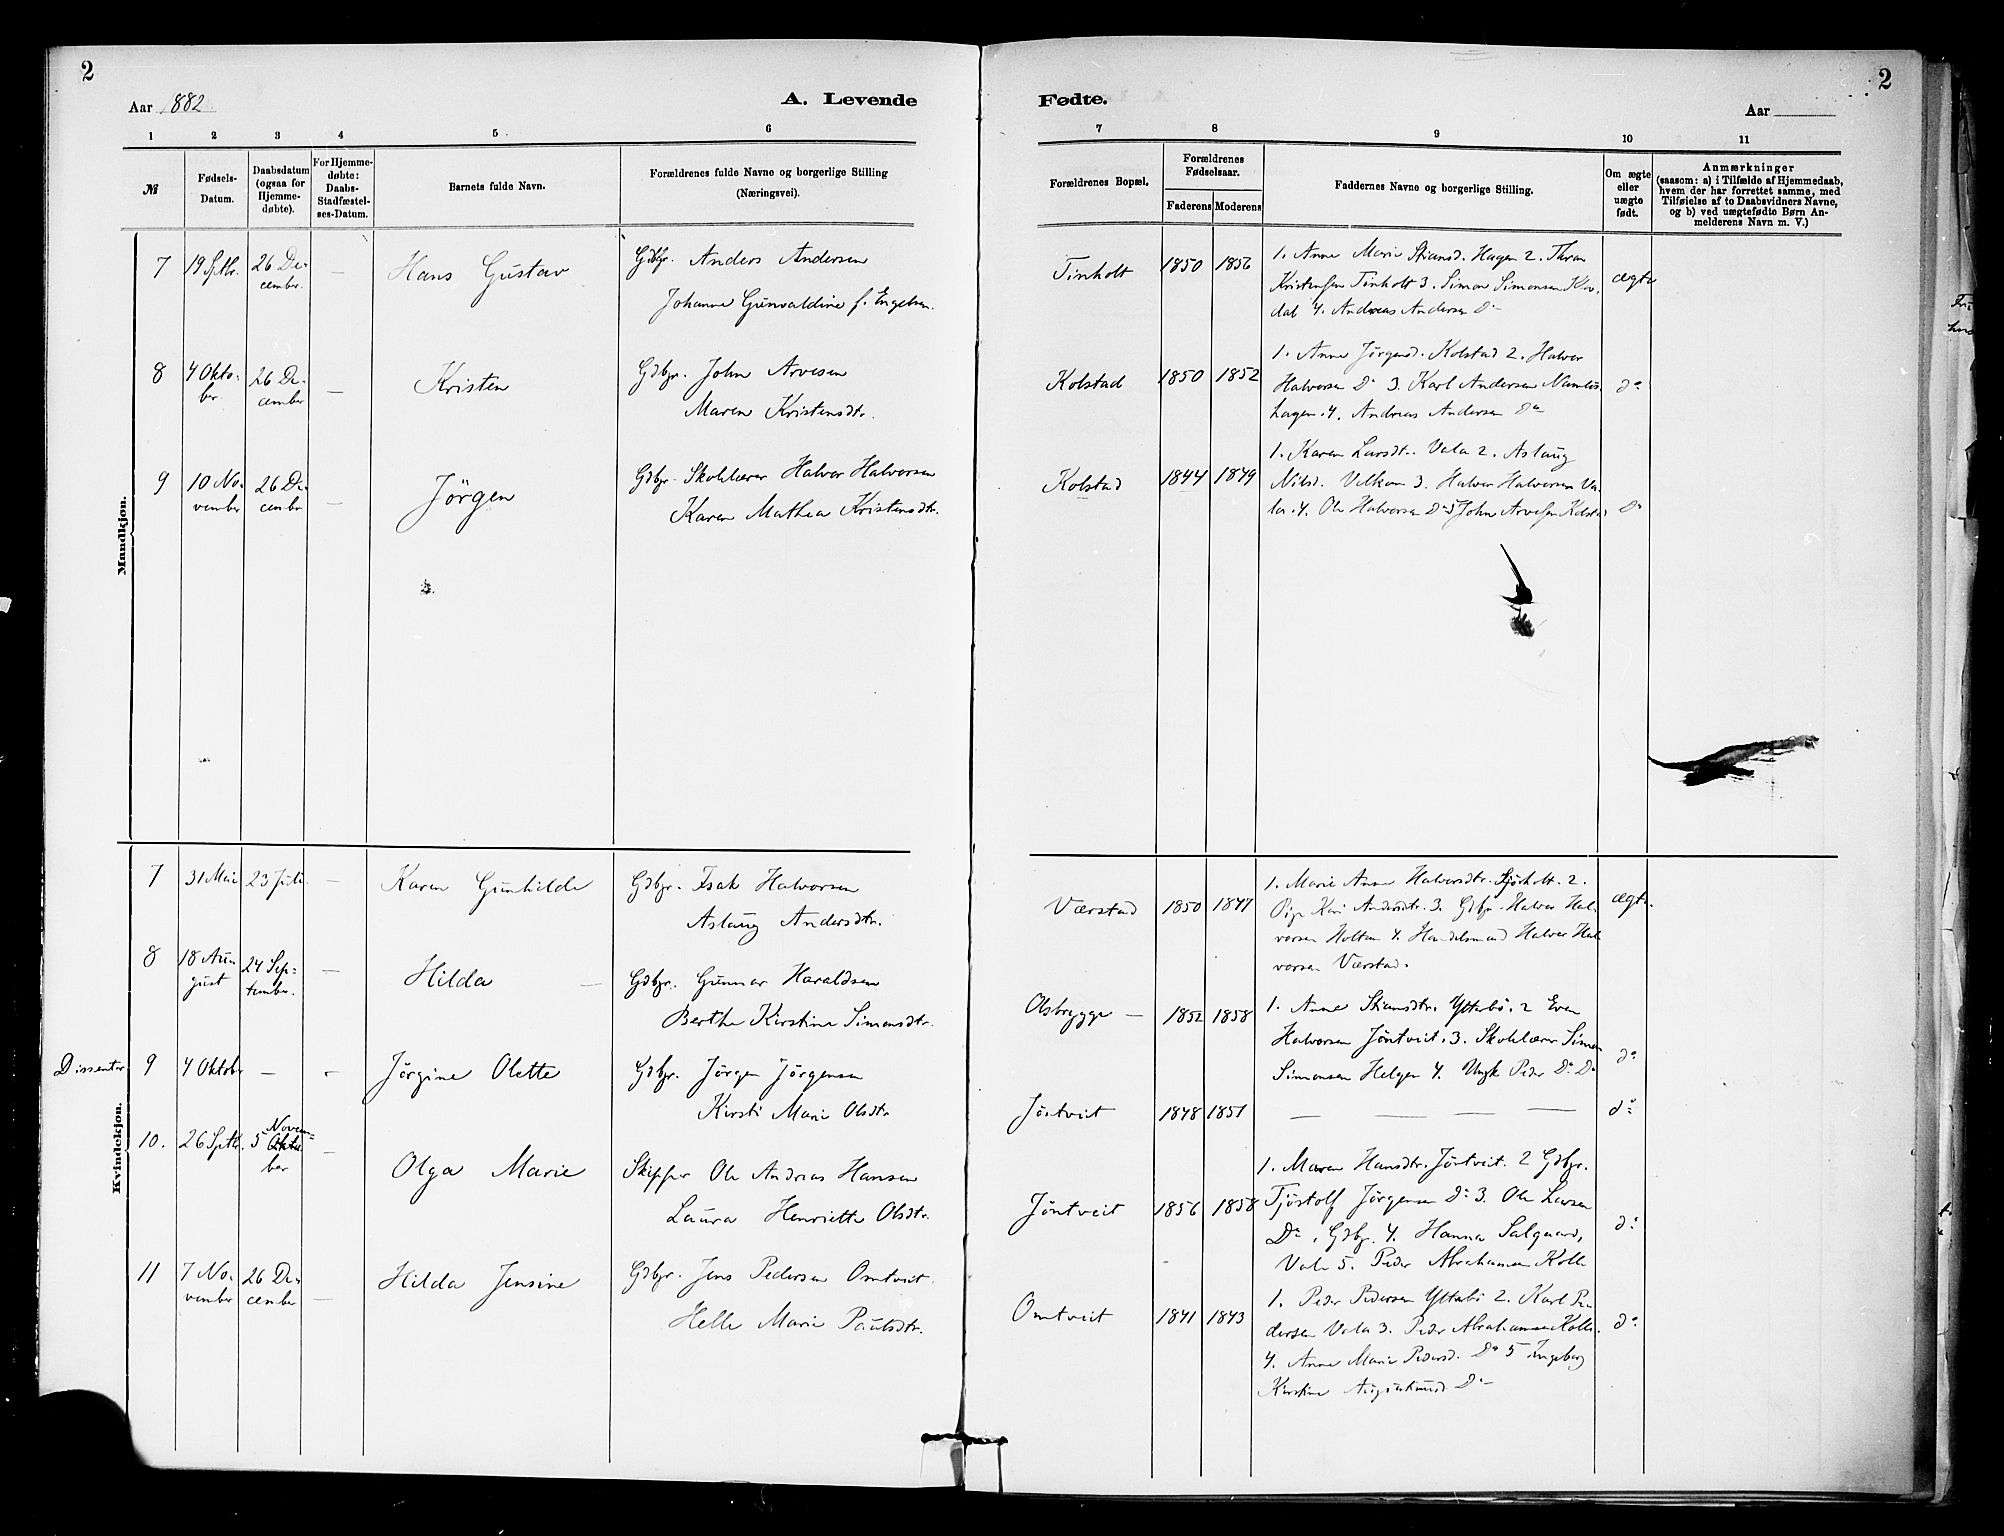 2
Aar 1882
A. Levende
1 2 3 4 5 6
№
Fødsels-
Datum.
Daabsdatum
(ogsaa for
Hjemme-
døbte).
For Hjemme-
døbte:
Daabs-
Stadfæstel-
ses-Datum.
Barnets fulde Navn.
Forældrenes fulde Navne og borgerlige Stilling
(Næringsvei).
Mandkjøn.
7 19 Sptbr. 26 De- — Hans Gustav Gdbgr. Anders Andersen
cember. Johanne Gunvaldine f. Engelsen.
8 4 Okto- 26 De- — Kristen Gdbgr. John Arvesen
ber. cember Maren Kristensdtr.
9 10 No- 26 De- — Jörgen Gdbgr. Skolelærer Halvor Halvorsen
vember cembr Karen Mathea Kristensdtr.
Kvindekjøn.
7 31 Mai 23 Juli — Karen Gunhilde Gdbgr. Isak Halvorsen
Aslaug Andersdtr.
8 18 Au- 24 Sep- — Hilda — Gdbgr. Gunnar Haraldsen
gust tember. Berthe Kirstine Simonsdtr.
Dissenter 9 4 Oktober — - Jørgine Olette Gdbgr. Jørgen Jørgensen
Kirsti Marie Olsdtr
10. 26 Sptb. 5 Novem- — Olga Marie Skipper Ole Andreas Hansen
ber Laura Henriette Olsdtr.
11 7 No- 26 De- — Hilda Jensine Gdbgr. Jens Pedersen Omtveit
vember cember Helle Marie Paulsdtr.
Fødte.
2
Aar
7 8 9 10 11
Forældrenes Bopæl.
Forældrenes
Fødselsaar.
Faderens Moderens
Faddernes Navne og borgerlige Stilling.
Om ægte
eller
uægte
født.
Anmærkninger
(saasom: a) i Tilfælde af Hjemmedaab,
hvem der har forrettet samme, med
Tilføielse af to Daabsvidners Navne,
og b) ved uægtefødte Børn An-
melderens Navn m. V.)
Tinholt 1850 1856 1. Anne Marie Hagen 2.
Kristensen Tinholt 3. Simon Simonsen ægte
dal 4. Andreas Andersen Do
Kolstad 1850 1852 1. Anne Jørgensd. Kolstad 2. Halvor
Halvorsen Do 3. Karl Andersen do
hagen. 4. Andreas Andersen Do
Kolstad 1844 1849 1. Karen Larsdt. Vala 2. Aslaug
Nilsd. 3. Halvor Halvorsen Va-
la. 4. Ole Halvorsen Do 5 John Arvesen Kolstad Do
Værstad 1850 1847 1. Marie Anne Halvorsdtr. 2.
Pige Kari Andersdtr. 3. Gdbgr. Halvor Hal- ægte
vorsen Holtan 4. Handelsmand Halvor Hal
vorsen Værstad.
Olsbrygge — 1852 1858 1. Anne Ytterbö. 2 Even
Halvorsen Jöntveit. 3. Skolelærer Simon
Simonsen Helgen 4. Ungk Peder Do Do do
Jöntveit 1848 1851 — — — — do
Jöntveit 1856 1858 1. Maren Hansdtr. Jöntveit. 2 Gdbgr.
Tjöstolf Jørgensen Do 3. Ole Larsen
Do, Gdbgr. 4. Hanna Salgaard, do
Vala 5. Peder Abrahamsen Kolle
Omtveit 1841 1843 1. Peder Pedersen Ytterbö 2. Karl Pe-
dersen Vala 3. Peder Abrahamsen Kolle. do
4. Anne Marie Pedersd. Do 5 Ingeborg
Kirstine Do